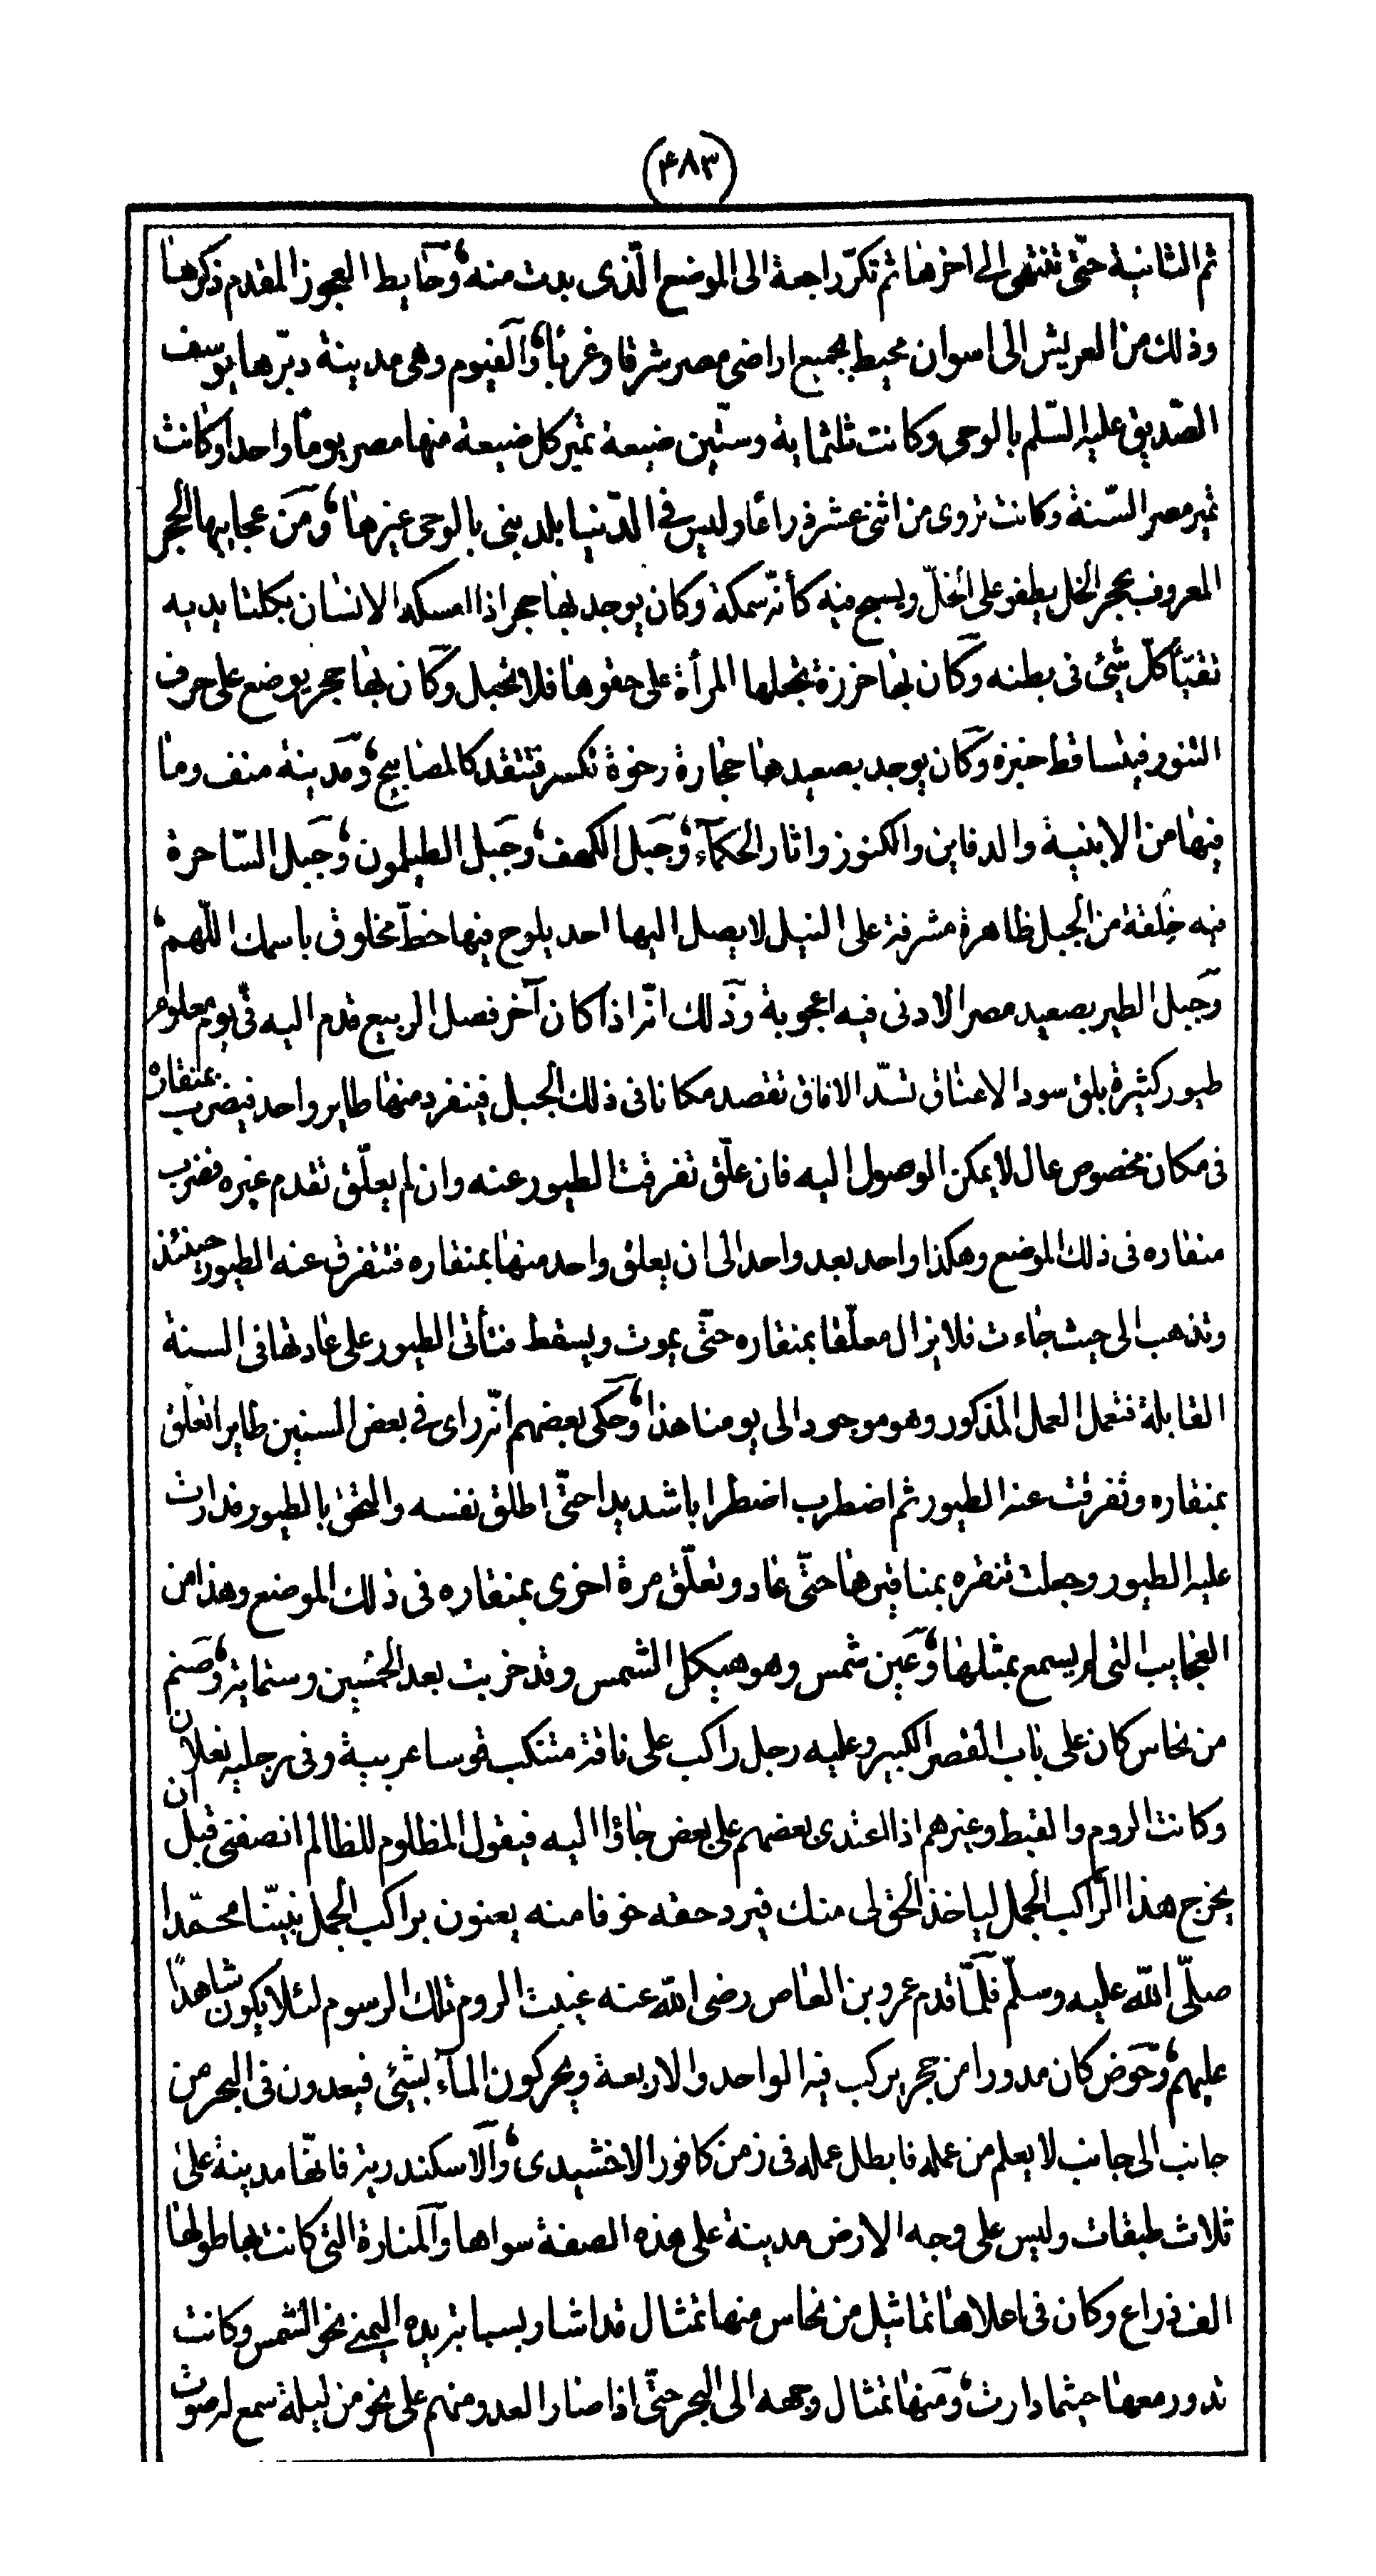 (۴۸۳)
ثم الثانية حتّى تنتهى الى اخرها ثم تكرّ راجعة الى الموضع الّذى بدت منه وحايط العجوز المقدم ذكرها
وذلك من العريش الى اسوان محيط بجميع اراضى مصر شرقا وغربا والفيوم وهى مدينة دبّرها يوسف
الصّديق عليه السّلم بالوحى وكانت ثلثماية وستّين ضيعة تمير كل ضيعة منها مصر يوما واحدا وكانت
تمير مصر السّنة وكانت تروى من اثنى عشر ذراعا وليس فى الدّنيا بلد بنى بالوحى غيرها ومن عجايبها الحجر
المعروف بحجر الخل يطفو على الخلّ ويسبح فيه كأنّه سمكة وكان يوجد بها حجر اذا امسكه الانسان بكلتا يديه
تقيّأ كلّ شئ فى بطنه وكان بها خرزة تجعلها المرأة على حقوها فلا تحبل وكان بها حجر يوضع على حرف
التنور فيتساقط خبزه وكان يوجد بصعيدها حجارة رخوة تكسر فتتقد كالمصابيح ومدينة منف وما
فيها من الابنية والدفاين والكنوز واثار الحكمآء وجبل الكهف وجبل الطيلمون وجبل السّاحرة
فيه خلقة من الجبل ظاهرة مشرفة على النيل لا يصل اليها احد يلوح فيها خطّ مخلوق باسمك اللّهم
وجبل الطير بصعيد مصر الادنى فيه اعجوبة وذلك انّه اذا كان آخر فصل الربيع قدم اليه فى يوم معلوم
طيور كثيرة بلق سود الاعناق تسدّ الافاق تقصد مكانا فى ذلك الجبل فينفرد منها طاير واحد فيضرب بمنقاره
فى مكان مخصوص عال لا يمكن الوصول اليه فان علّق تفرقت الطيور عنه وان لم يعلّق تقدم غيره فضرب
منقاره فى ذلك الموضع وهكذا واحد بعد واحد الى ان يعلق واحد منها بمنقاره فتتفرق عنه الطيور حينئذ
وتذهب الى حيث جاءت فلا يزال معلّقا بمنقاره حتّى يموت ويسقط فتأتى الطيور على عادتها فى السنة
القابلة فتعمل العمل المذكور وهو موجود الى يومنا هذا وحكى بعضهم انّه راى فى بعض السنين طايرا تعلّق
بمنقاره وتفرقت عنه الطيور ثم اضطرب اضطرابا شديدا حتّى اطلق نفسه والتحق بالطيور فدارت
عليه الطيور وجعلت تنقره بمناقيرها حتّى عاد وتعلّق مرة اخرى بمنقاره فى ذلك الموضع وهذا من
العجايب التى لم يسمع بمثلها وعين شمس وهو هيكل الشمس وقد خربت بعد الخمسين وستماية وصنم
من نحاس كان على باب القصر الكبير وعليه رجل راكب على ناقة متنكب قوسا عربية وفى رجليه نعلان
وكانت الروم والقبط وغيرهم اذا اعتدى بعضهم على بعض جاؤا اليه فيقول المظلوم للظالم انصفنى قبل ان
يخرج هذا الرّاكب الجمل لياخذ الحق لى منك فيرد حقه خوفا منه يعنون براكب الجمل نبيّنا محمّدا
صلّى اللّه عليه وسلّم فلمّا قدم عمرو بن العاص رضى اللّه عنه غيبت الروم تلك الرسوم لئلا يكون شاهدًا
عليهم وحوض كان مدورا من حجر يركب فيه الواحد والاربعة ويحركون المآء بشئ فيعدون فى البحر من
جانب الى جانب لا يعلم من عمله فابطل عمله فى زمن كافور الاخشيدى والاسكندرية فانّها مدينة على
ثلاث طبقات وليس على وجه الارض مدينة على هذه الصفة سواها والمنارة التى كانت بها طولها
الف ذراع وكان فى اعلاها تماثيل من نحاس منها تمثال قد اشار بسبابة يده اليمنى نحو الشمس وكانت
تدور معها حيثما دارت ومنها تمثال وجهه الى البحر حتّى اذا صار العدو منهم على نحو من ليلة سمع له صوت